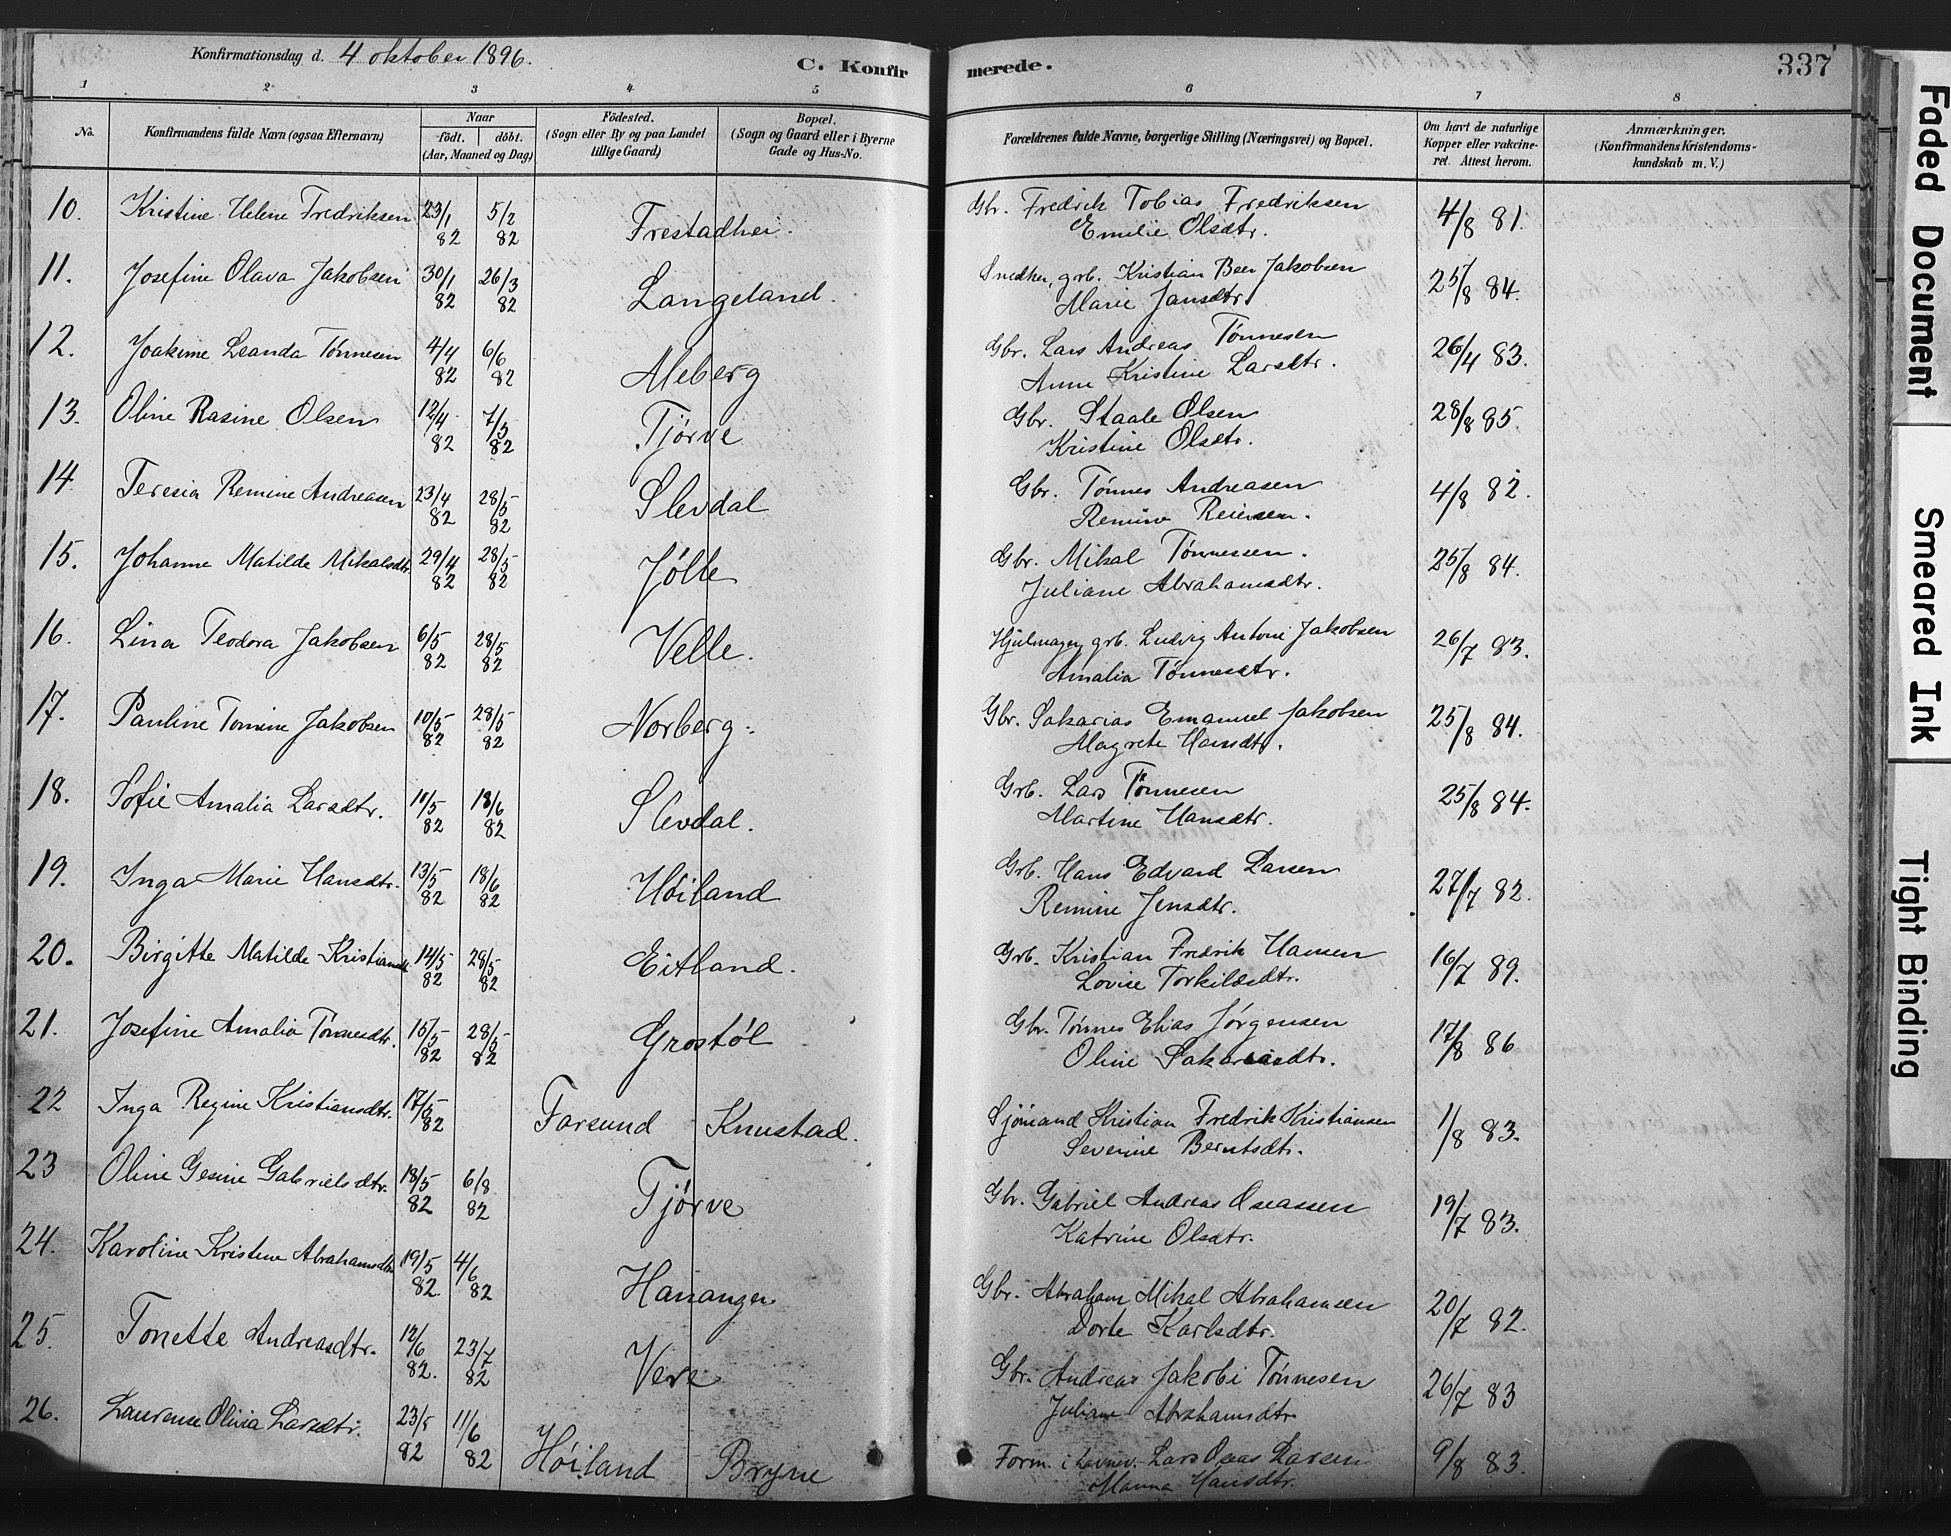 Konfirmationsdag d. 4 oktober 1896.
C. Konfirmerede.
337
1 2 3 4 5 6 7 8
No.
Konfirmandens fulde Navn (ogsaa Efternavn)
Naar
født. døbt.
(Aar, Maaned og Dag)
Fødested.
(Sogn eller By og paa Landet
tillige Gaard)
Bopæl.
(Sogn og Gaard eller i Byerne
Gade og Hus-No.
Forældrenes fulde Navne, borgerlige Stilling (Næringsvei) og Bopæl.
Om havt de naturlige
Kopper eller vakcine-
ret. Attest herom.
Anmærkninger.
(Konfirmandens Kristendoms-
kundskab m. V.)
10. Kristine Helene Fredriksen 23/1 82 5/2 82 Frestadhei. Gbr. Fredrik Tobias Fredriksen 4/8 81.
Emilie Olsdtr.
11. Josefine Olava Jakobsen 30/1 82 26/3 82 Langeland. Snedker, grb. Kristian Beer Jakobsen 25/8 84.
Marie Jansdtr.
12. Joakime Leanda Tønnesen 4/4 82 6/6 82 Meberg Gbr. Lars Andreas Tønnesen 26/4 83.
Anne Kristine Larsdtr.
13. Oline Rasine Olsen 12/4 82 7/5 82 Tjørve Gbr. Staale Olsen 28/8 85.
Kristine Olsdtr.
14 Teresia Remine Andreasen 23/4 82 28/5 82 Slevdal Gbr. Tønnes Andreasen 4/8 82.
Remine Reiersen.
15. Johanne Matilde Mikalsdtr. 29/4 82 28/5 82 Jølle Gbr. Mikal Tønnessen. 25/8 84.
Juliane Abrahamsdtr.
16. Lina Teodora Jakobsen 6/5 82 28/5 82 Velle. Hjulmager, grb. Ludvig Antoni Jakobsen 26/7 83.
Amalia Tønnesdtr.
17. Pauline Tomine Jakobsen 10/5 82 28/5 82 Norberg. Gbr. Sakarias Emanuel Jakobsen 25/8 84.
Magrete Hansdtr.
18. Sofie Amalia Larsdtr. 11/5 82 18/6 82 Slevdal. Grb. Lars Tønnesen 25/8 84.
Martine Hansdtr.
19. Inga Marie Hansdtr. 13/5 82 18/6 82 Høiland Grb. Hans Edvard Larsen 27/7 82.
Remine Jensdtr.
20. Birgitte Matilde Kristiansdtr 14/5 82 29/5 82 Eitland. Grb. Kristian Fredrik Hansen 16/7 89.
Lovise Torkildsdtr.
21. Josefine Amalia Tønnesdtr. 15/5 82 28/5 82 Grostøl Gbr. Tønnes Elias Jørgensen 17/8 86
Oline Sakariasdtr.
22 Inga Regine Kristiansdtr. 17/5 82 Farsund Knustad. Sjømand Kristian Fredrik Kristiansen 1/8 83.
Severine Berntsdtr.
23 Oline Gesine Gabrielsdtr. 18/5 82 6/8 82 Tjørve Gbr. Gabriel Andreas Oseassen 19/7 83.
Katrine Olsdtr.
24. Karoline Kristine Abrahamsdtr 19/5 82. 4/6 82 Hananger Gbr. Abraham Mikal Abrahamsen 20/7 82.
Dorte Karlsdtr.
25. Tonette Andreasdtr. 12/6 82. 23/7 82 Vere Gbr. Andreas Jakobi Tønnesen 26/7 83
Juliane Abrahamsdtr
26. Laurense Olivia Larsdtr. 23/5 82 11/6 82 Høiland Bryne Form. i Lars Oseas Larsen 9/8 83.
Manna Hansdtr.
Faded Document
Smeared Ink
Tight Binding